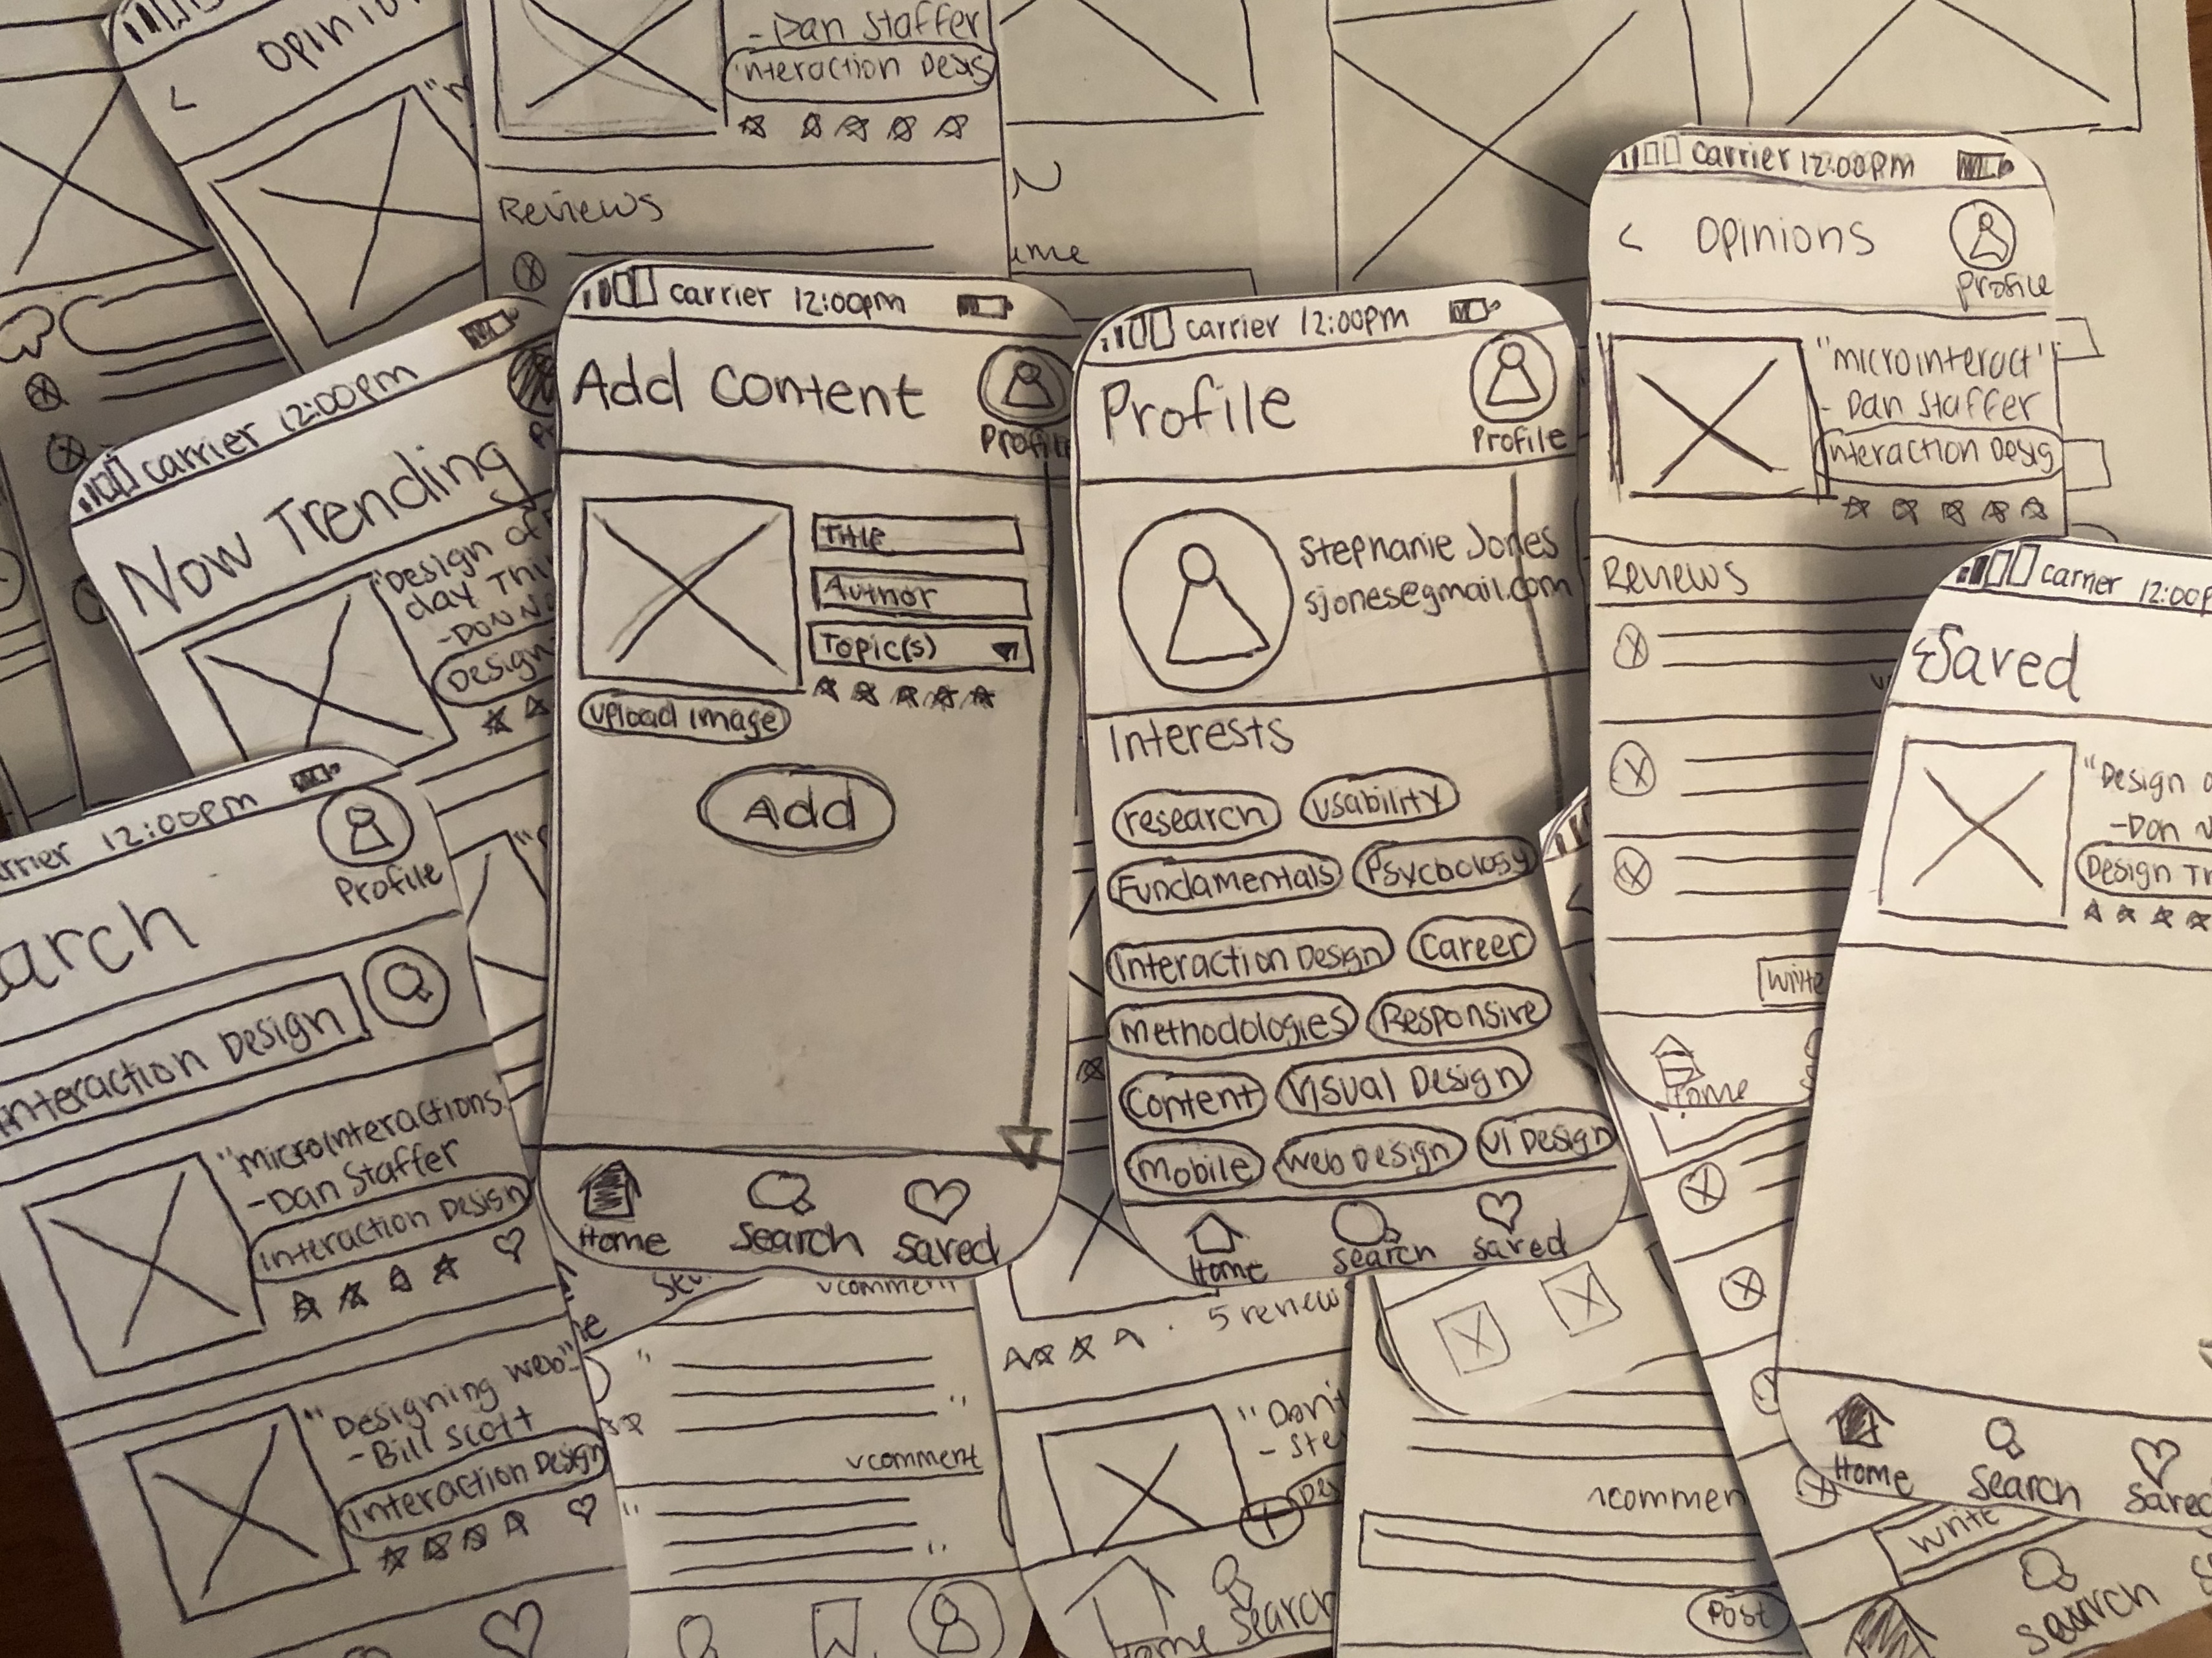 Opini
- Dan Staffer
Interaction Desig
Reviews
ume
carrier 12:00pm
Now Trending
"Design of
day Thi
- Don No
Design
carrier 12:00pm
Add Content
Profile
Title
Author
Topic(s)
Upload Image
Add
Home
Search
Saved
carrier 12:00pm
Profile
Profile
Stephanie Jones
sjones@gmail.com
Interests
research
usability
Fundamentals
Psychology
Interaction Design
Career
Methodologies
Responsive
Content
Visual Design
Mobile
Web Design
UI Design
Home
Search
Saved
carrier 12:00pm
< Opinions
Profile
"microinteract"
- Dan Staffer
Interaction Desig
Reviews
Write
Home
carrier 12:00p
Saved
"Design o
- Don N
Design Th
Home
Search
Saved
arrier 12:00pm
Profile
arch
Interaction Design
"microInteractions
- Dan Staffer
Interaction Design
"Designing web"
- Bill Scott
Interaction Design
comment
comment
5 review
"Don't
- Ste
Des
Home
Search
commen
Post
Write
Search